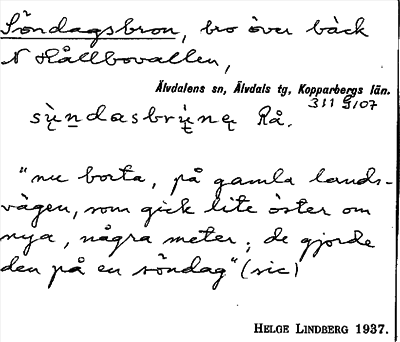 Söndagsbron, bro över bäck
N Hållbovallen,
Älvdalens sn, Älvdals tg, Kopparbergs län.
311 9/07
Rå.
"nu borta, på gamla lands-
vägen, som gick lite öster om
nya, några meter; de gjorde
den på en söndag" (sic)
HELGE LINDBERG 1937.